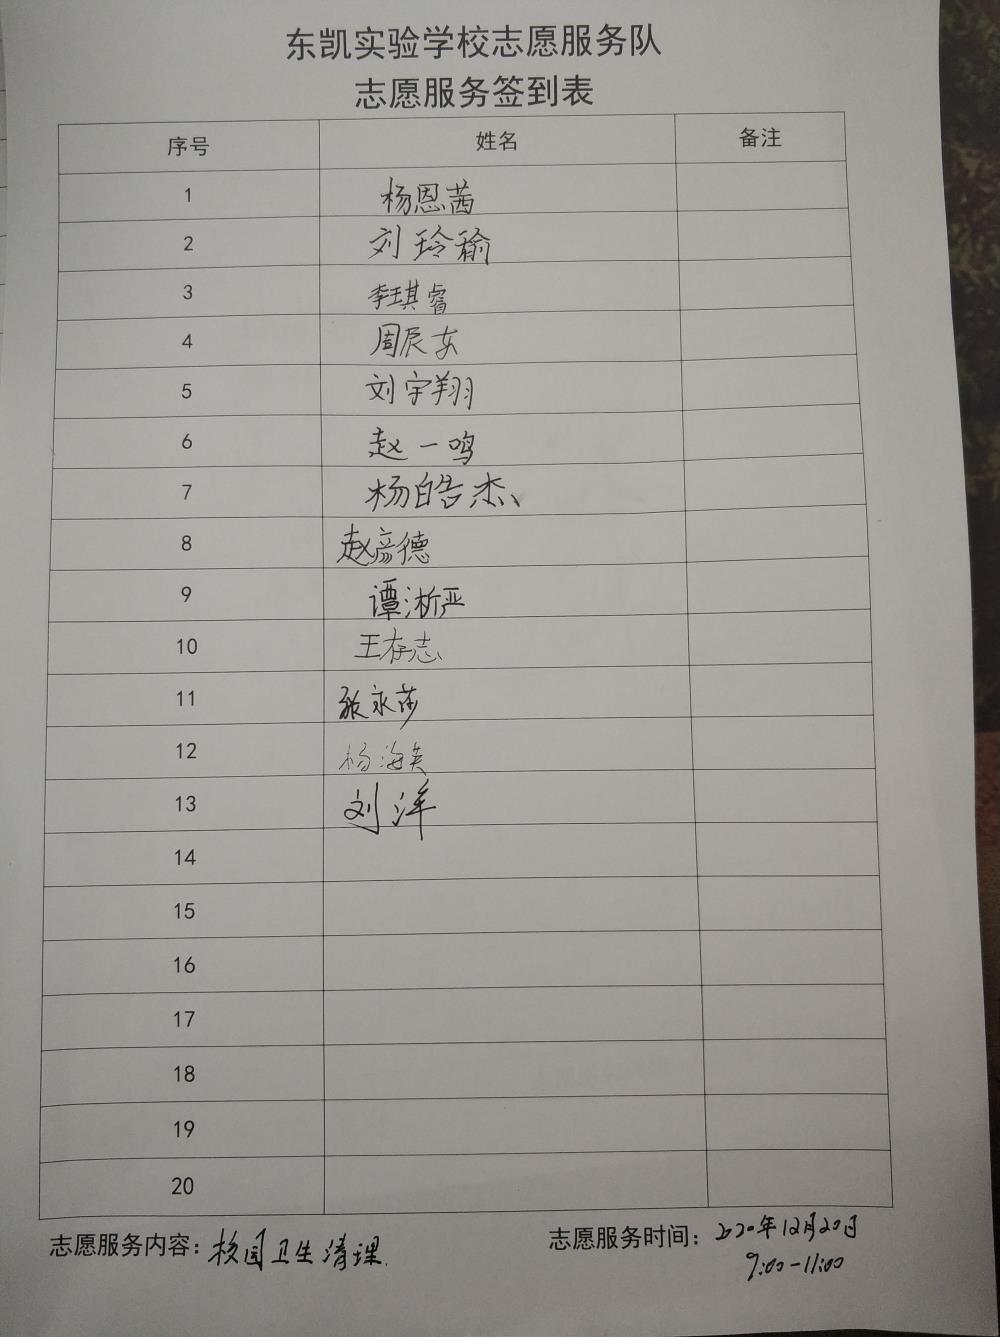 东凯实验学校志愿服务队
志愿服务签到表
序号 姓名 备注
1 杨恩茜
2 刘玲瑜
3 李琪睿
4 周辰安
5 刘宇翔
6 赵一鸣
7 杨皓杰
8 赵彦德
9 谭淅严
10 王存志
11 张永莎
12 杨海英
13 刘洋
14
15
16
17
18
19
20
志愿服务内容：校园卫生清理. 志愿服务时间：2020年12月20日
9:00-11:00